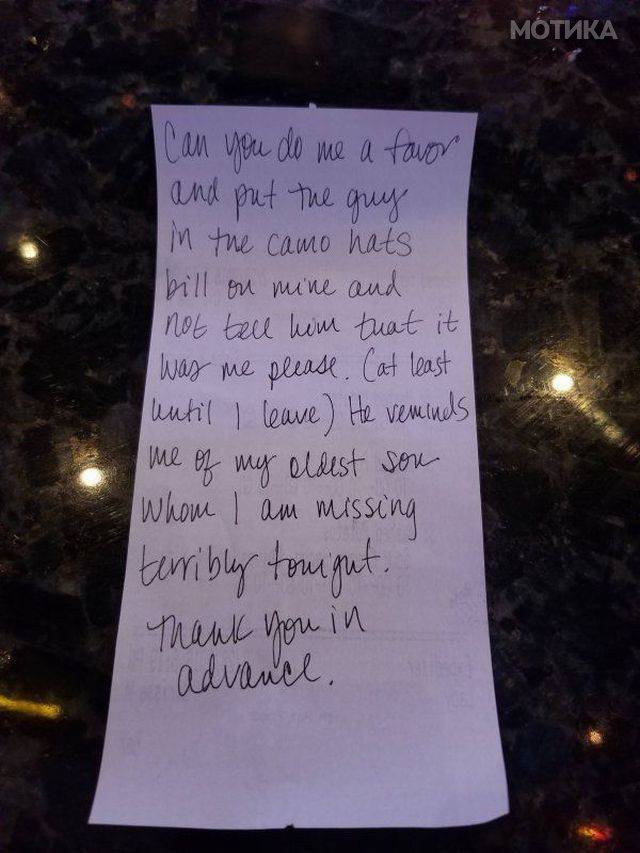 МОТИКА
Can you do me a favor
and put the guy
in the camo hats
bill on mine and
not tell him that it
was me please. (at least
until I leave) He reminds
me of my oldest son
whom I am missing
terribly tonight.
Thank you in
advance.